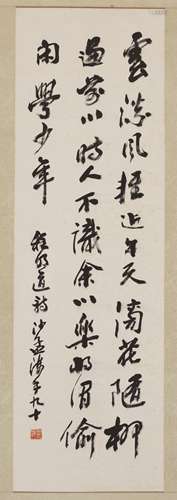 雲淡風輕近午天傍花隨柳
過前川時人不識余心樂將謂偷
閑學少年 程明道詩 沙孟海年九十